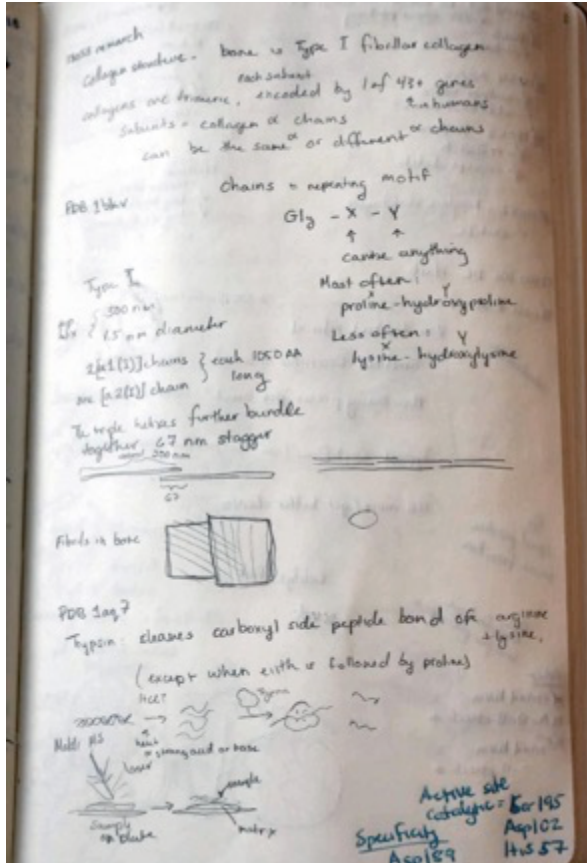 research
collagen structure - bone is Type I fibrillar collagen
each subunit
collagens are trimeric, encoded by 1 of 43+ genes
in humans
subunits = collagen α chains
can be the same α or different α chains
chains = repeating motif
PDB 1bkv
Gly - X - Y
can be anything
Type I
Most often:
X Y
proline-hydroxyproline
300 nm
1.5 nm diameter
Less often:
X Y
lysine - hydroxylysine
2 [α1(I)] chains } each 1050 AA
one [α2(I)] chain long
The triple helices further bundle
together 67 nm stagger
300 nm
67
Fibrils in bone
PDB 1aq7
Trypsin: cleaves carboxyl side peptide bond of arginine
+ lysine,
(except when either is followed by proline)
HCl?
heat
strong acid or base
Maldi MS
laser
sample
sample
on plate
matrix
Active site
catalytic = Ser 195
Asp 102
His 57
Specificity
Asp 189